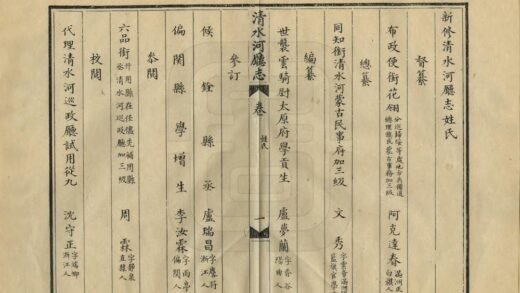 新修清水河廳志姓氏
督纂
布政使銜花翎 分巡歸綏等處地方兵備道 總理旗民蒙古事務加三級 阿克達春 滿洲正 白旗人
總纂
同知銜清水河蒙古民事府加三級 文秀 字雲亭滿洲正 藍旗官學生
編纂
世襲雲騎尉太原府學貢生 盧夢蘭 字香谷 陽曲人
清水河廳志 卷 姓氏 一
參訂
候銓縣丞 盧瑞昌 字慶符 浙江人
偏關縣學增生 李汝霖 字雨亭 偏關人
參閱
六品銜 升用縣在任儘先補用縣 丞清水河巡政廳加三級 周霖 字靜泉 直隸人
挍閱
代理清水河巡政廳試用從九 沈守正 字端卿 浙江人